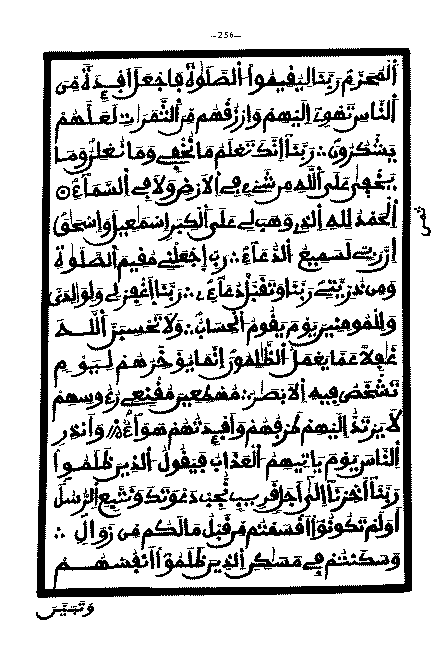 –256–
ٱلْمُحَرَّمِ رَبَّنَا لِيُقِيمُوا۟ ٱلصَّلَوٰةَ فَٱجْعَلْ أَفْـِٔدَةً مِّنَ
ٱلنَّاسِ تَهْوِىٓ إِلَيْهِمْ وَٱرْزُقْهُم مِّنَ ٱلثَّمَرَٰتِ لَعَلَّهُمْ
يَشْكُرُونَ ∴ رَبَّنَآ إِنَّكَ تَعْلَمُ مَا نُخْفِى وَمَا نُعْلِنُ وَمَا
يَخْفَىٰ عَلَى ٱللَّهِ مِن شَىْءٍ فِى ٱلْأَرْضِ وَلَا فِى ٱلسَّمَآءِ ⊙
ٱلْحَمْدُ لِلهِ ٱلَّذِى وَهَبَ لِى عَلَى ٱلْكِبَرِ إِسْمَٰعِيلَ وَإِسْحَٰقَ
ثمن
إِنَّ رَبِّى لَسَمِيعُ ٱلدُّعَآءِ ∴ رَبِّ ٱجْعَلْنِى مُقِيمَ ٱلصَّلَوٰةِ
وَمِن ذُرِّيَّتِى رَبَّنَا وَتَقَبَّلْ دُعَآءِ ∴ رَبَّنَا ٱغْفِرْ لِى وَلِوَٰلِدَىَّ
وَلِلْمُومِنِينَ يَوْمَ يَقُومُ ٱلْحِسَابُ ∴ وَلَا تَحْسِبَنَّ ٱللَّهَ
غَٰفِلًا عَمَّا يَعْمَلُ ٱلظَّٰلِمُونَ إِنَّمَا يُؤَخِّرُهُمْ لِيَوْمٍ
تَشْخَصُ فِيهِ ٱلْأَبْصَٰرُ ∴ مُهْطِعِينَ مُقْنِعِى رُءُوسِهِمْ
لَا يَرْتَدُّ إِلَيْهِمْ طَرْفُهُمْ وَأَفْـِٔدَتُهُمْ هَوَآءٌ ∴ وَأَنذِرِ
ٱلنَّاسَ يَوْمَ يَاتِيهِمُ ٱلْعَذَابُ فَيَقُولُ ٱلَّذِينَ ظَلَمُوا۟
رَبَّنَآ أَخِّرْنَآ إِلَىٰٓ أَجَلٍ قَرِيبٍ نُّجِبْ دَعْوَتَكَ وَنَتَّبِعِ ٱلرُّسُلَ
أَوَلَمْ تَكُونُوٓا۟ أَقْسَمْتُم مِّن قَبْلُ مَا لَكُم مِّن زَوَالٍ ∴
وَسَكَنتُمْ فِى مَسَٰكِنِ ٱلَّذِينَ ظَلَمُوٓا۟ أَنفُسَهُمْ
وَتَبَيَّنَ